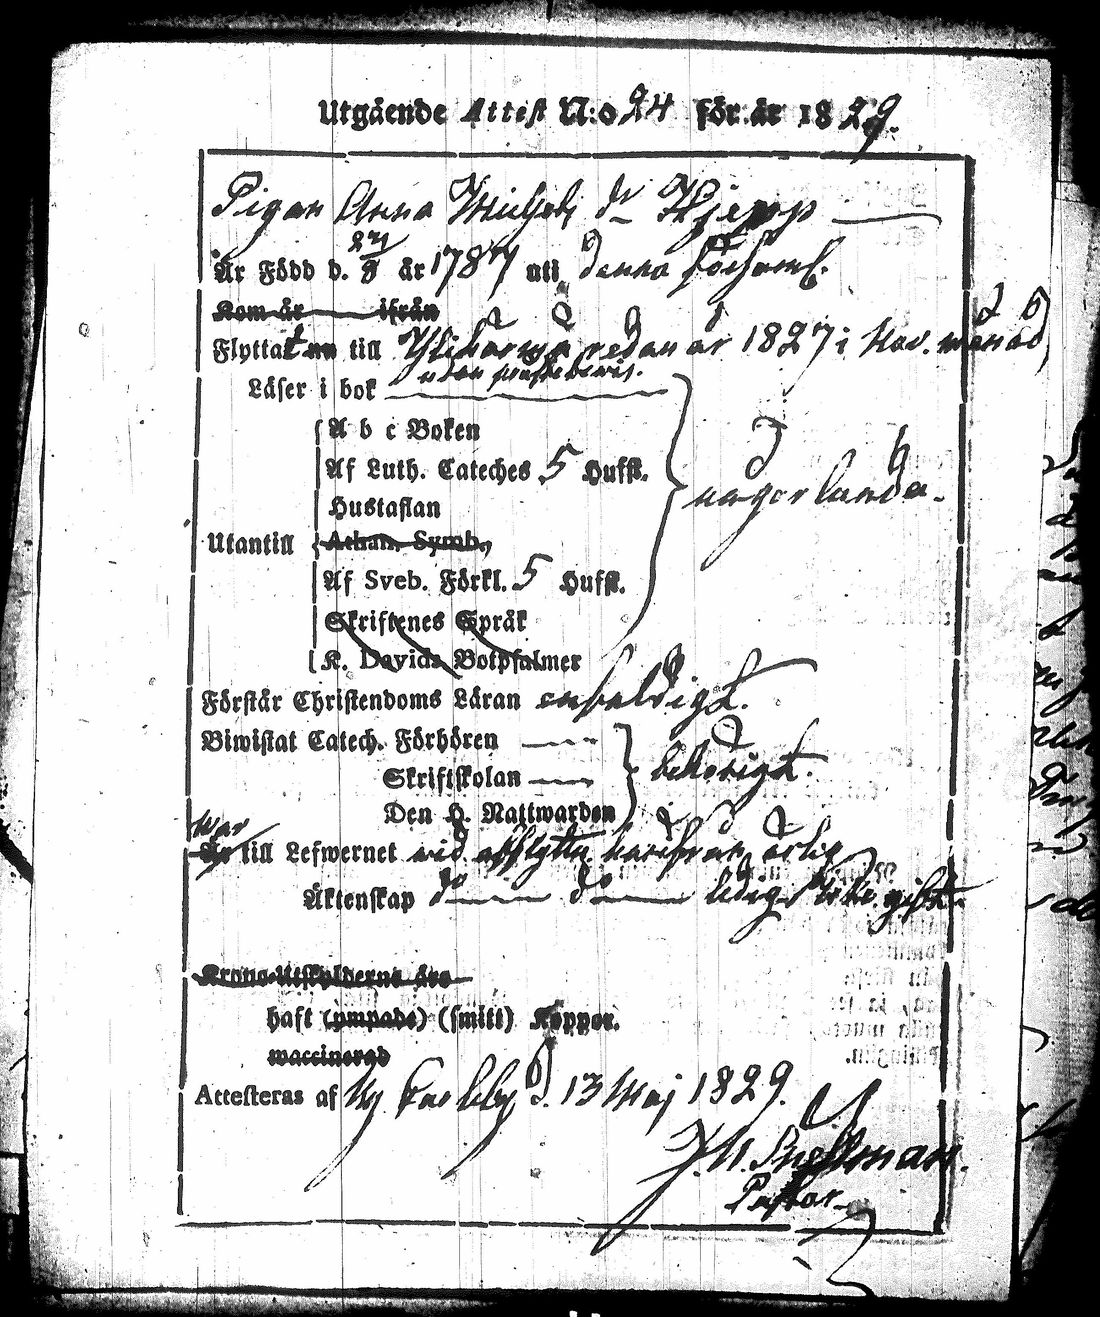 Utgående Attest N:o 24 för år 1829.
Pigan Anna dr
Är Född d. 27/8 år 1787 uti denna församl.
Kom år ifrån
Flyttat till Ylihärmä redan år 1827 i Nov. månad
utan prestbevis.
Läser i bok
A b c Boken
Af Luth. Cateches 5 Hufst.
någorlunda.
Hustaflan
Utantill
Athan. Symb.
Af Sveb. Förkl. 5 Hufst.
Skriftenes Språk
K. Davids Botpsalmer
Förstår Christendoms Läran enfaldigt.
Biwistat Catech. Förhören
Skriftskolan
behörigt.
Den H. Nattwarden
War
Är till Lefwernet vid afflyttn. härifrån ärlig
Äktenskap do do ledig icke gift
Krono-Utskylderne äro
haft (ympade) (smitt) Koppor.
waccinerad
Attesteras af Ny Carleby d. 13 Maj 1829.
J. M. Snellman.
Pastor